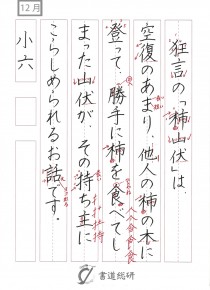 12月
狂言の「柿山伏」は、
空復のあまり、他人の柿の木に
登って、勝手に柿を食べてし
まった山伏が、その持ち主に
こらしめられるお話です。
小六
書道総研